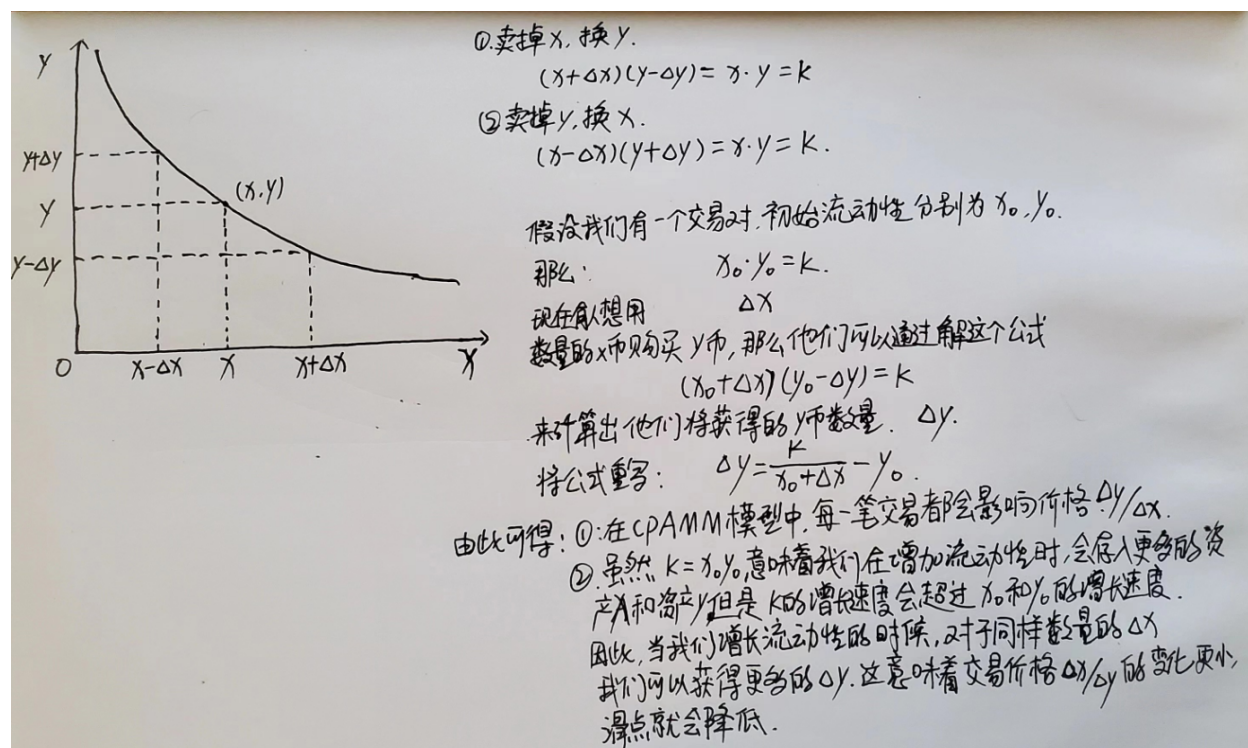 Y
y+Δy
y
y-Δy
(x,y)
O
x-Δx
x
x+Δx
X
①.卖掉x,换y.
(x+Δx)(y-Δy)=x·y=k
②卖掉y,换x.
(x-Δx)(y+Δy)=x·y=k.
假设我们有一个交易对,初始流动性分别为x₀,y₀.
那么: x₀·y₀=k.
现在有人想用 Δx
数量的x币购买y币,那么他们可以通过解这个公式
(x₀+Δx)(y₀-Δy)=k
来计算出他们将获得的y币数量. Δy.
将公式重写: Δy=k/(x₀+Δx)-y₀.
由此可得:①:在CPAMM模型中,每一笔交易都会影响价格Δy/Δx.
②.虽然k=x₀y₀,意味着我们在增加流动性时,会存入更多的资
产A和资产y,但是k的增长速度会超过x₀和y₀的增长速度.
因此,当我们增长流动性的时候,对于同样数量的Δx
我们可以获得更多的Δy.这意味着交易价格Δx/Δy的变化更小,
滑点就会降低.